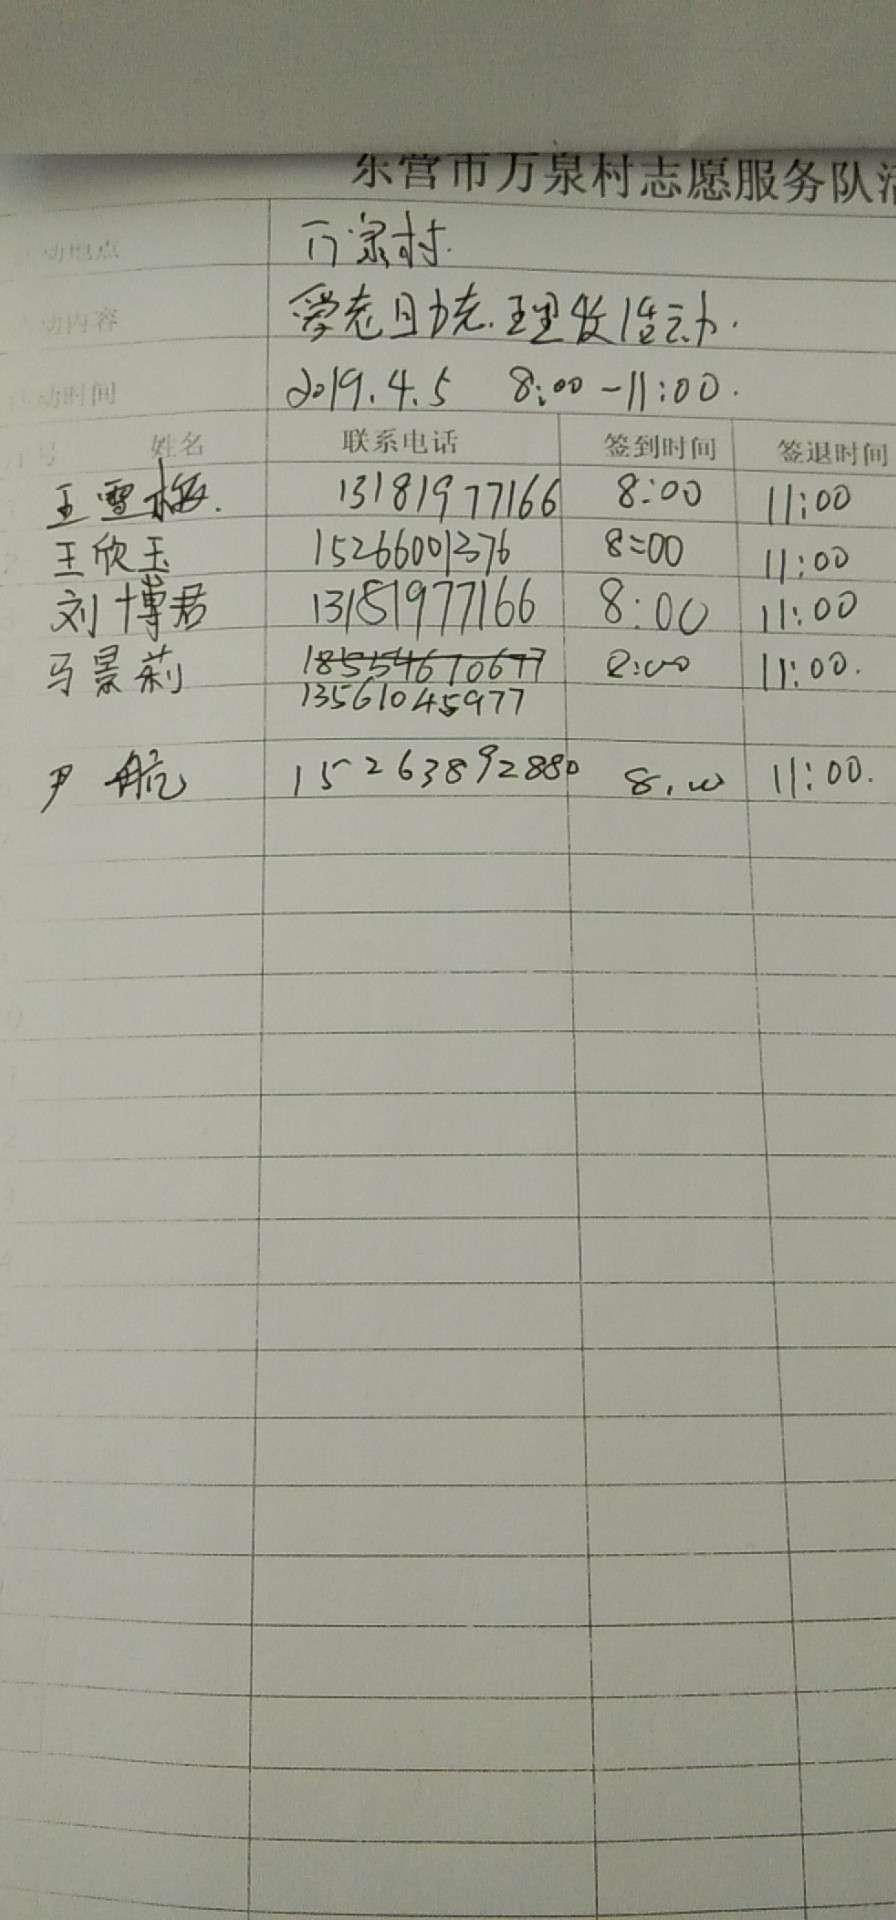 东营市万泉村志愿服务队活
动地点 万泉村.
动内容 爱老助老.理发活动.
动时间 2019.4.5 8:00-11:00.
号 姓名 联系电话 签到时间 签退时间
王雪梅. 13181977166 8:00 11:00
王欣玉 15266001376 8:00 11:00
刘博君 13181977166 8:00 11:00
马景莉 18554670677 8:00 11:00.
13561045977
尹航 15263892880 8.00 11:00.